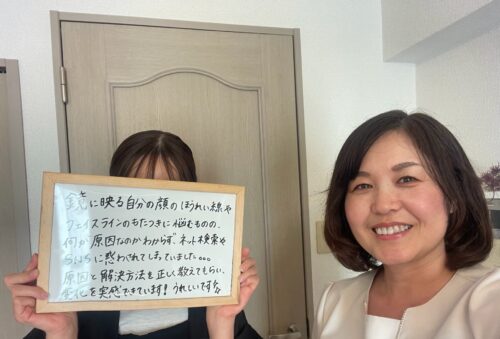 鏡に映る自分の顔のほうれい線や
フェイスラインのもたつきに悩むものの、
何が原因なのかわからず、ネット検索や
SNSに惑わされてしまっていました。。。
原因と解決方法を正しく教えてもらい、
変化を実感できています！うれしいです